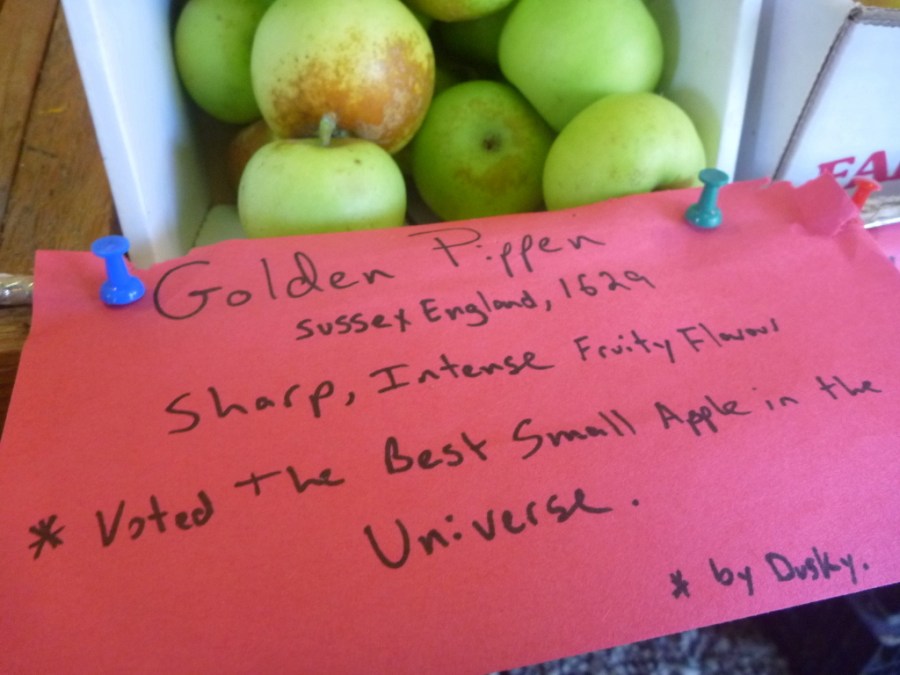 Golden Pippen
Sussex England, 1629
Sharp, Intense Fruity Flavour
* Voted the Best Small Apple in the
Universe.
* by Dusky.